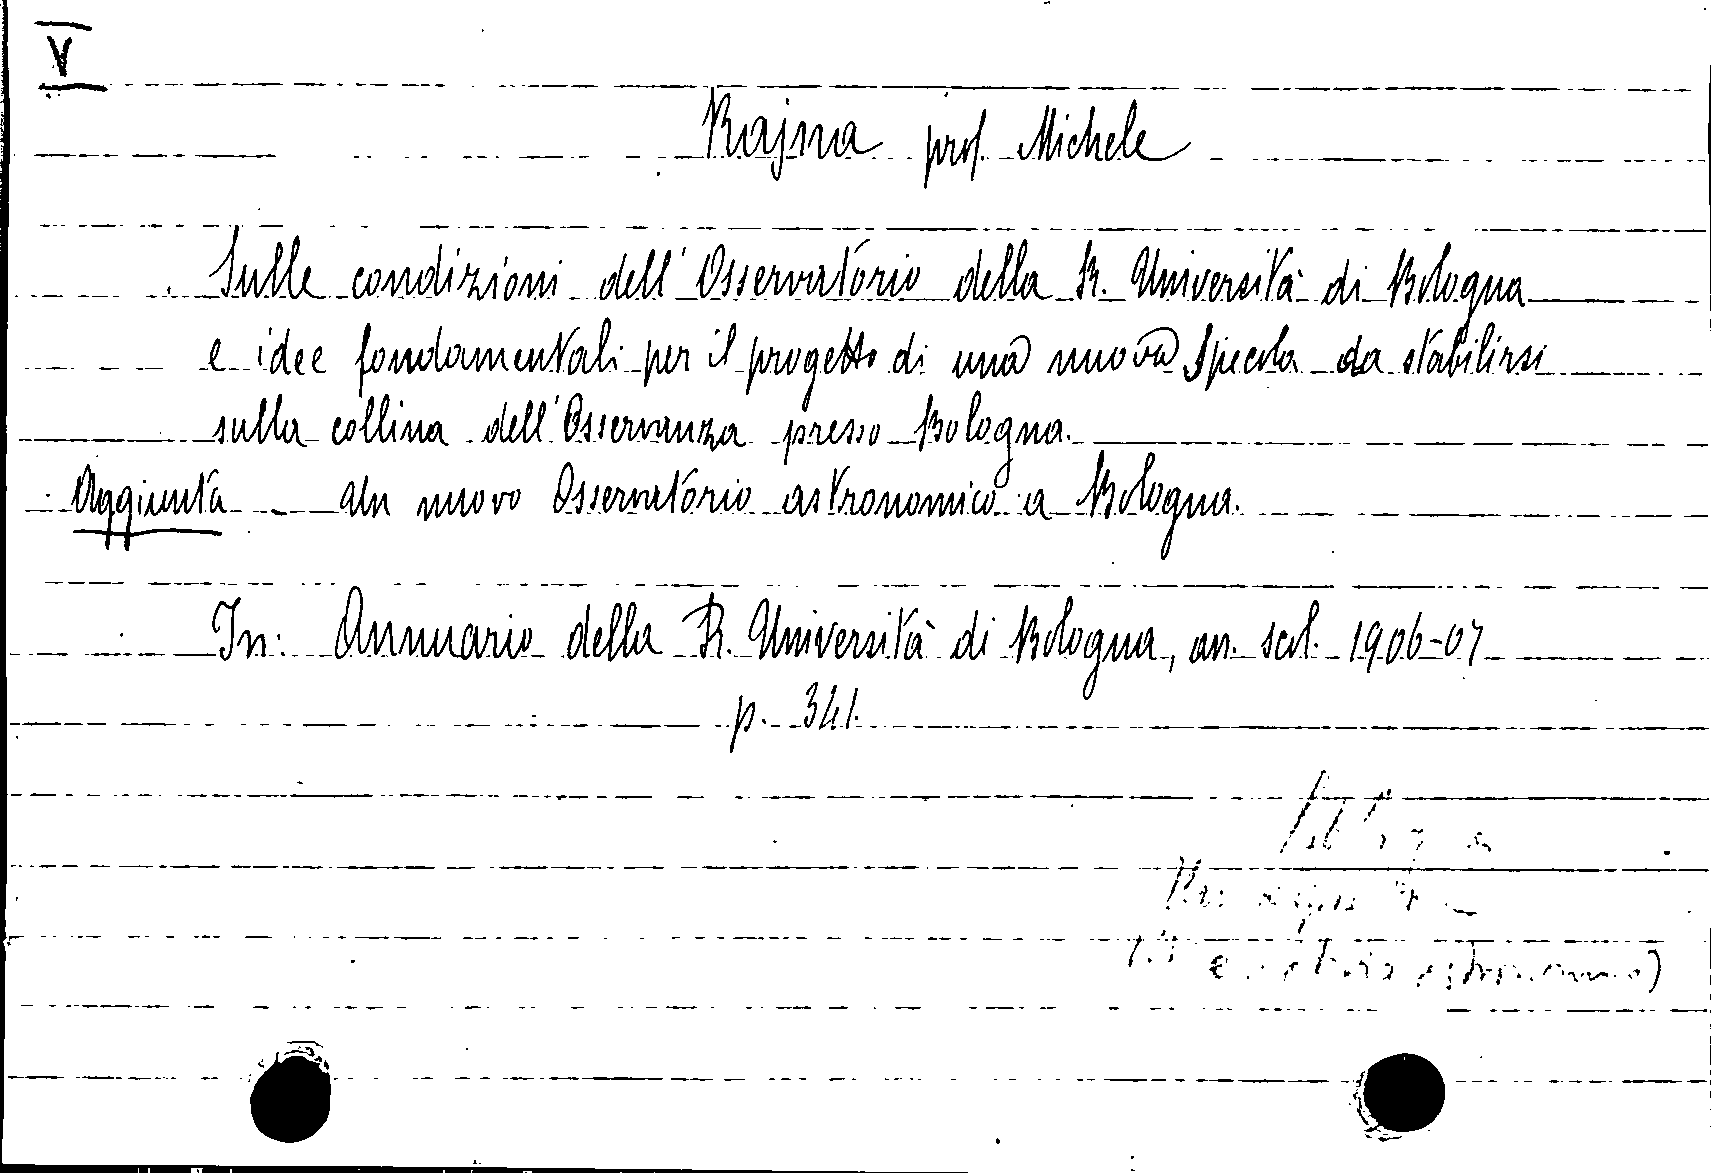 V
Rajna prof. Michele
Sulle condizioni dell'Osservatorio della R. Università di Bologna
e idee fondamentali per il progetto di una nuova Specola da stabilirsi
sulla collina dell'Osservanza presso Bologna.
Aggiunta - Un nuovo Osservatorio astronomico a Bologna.
In: Annuario della R. Università di Bologna, an. scol. 1906-07
p. 341.